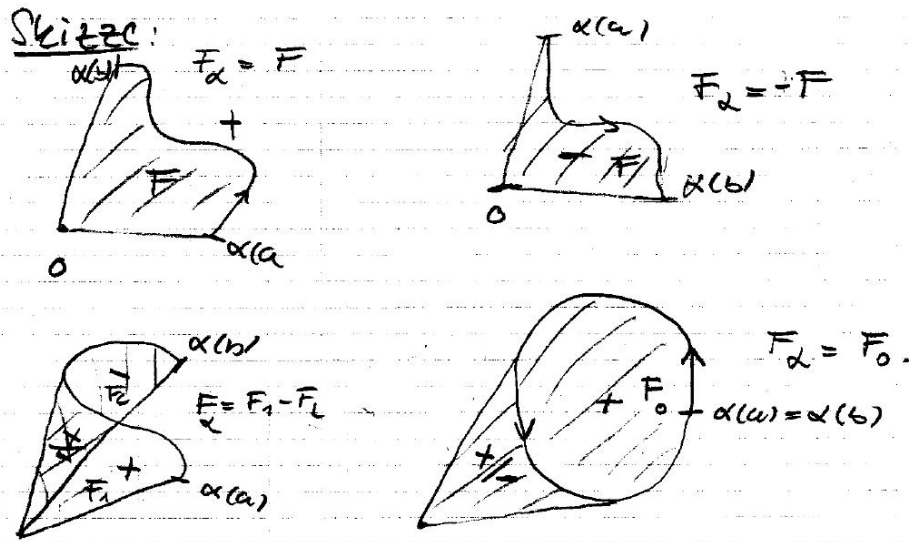 Skizze:
α(b)
F_α = F
+
F
α(a
0
α(a)
F_α = -F
- F
α(b)
0
α(b)
F_2
F_α = F_1 - F_2
+
F_1
α(a)
F_α = F_0.
+ F_0
α(a) = α(b)
+/-